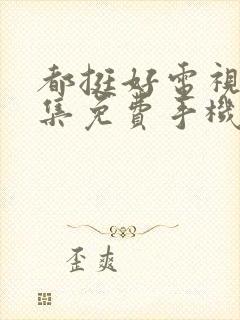 都挺好電視
集免費手機
歪爽